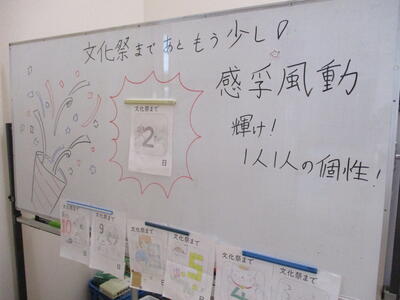 文化祭まであともう少し!
感孚風動
輝け!
1人1人の個性!
文化祭まで
2
日
文化祭まで
10
日
文化祭まで
9
日
文化祭まで
日
文化祭まで
5
日
文化祭まで
4
文化祭まで
3